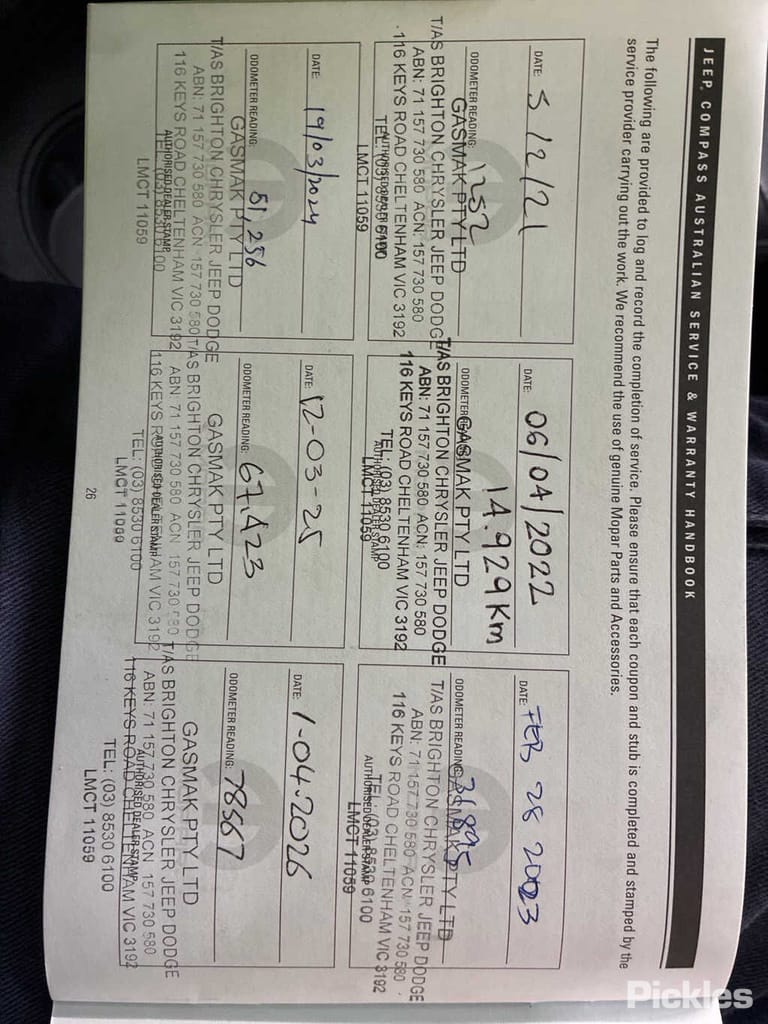 JEEP® COMPASS AUSTRALIAN SERVICE & WARRANTY HANDBOOK
The following are provided to log and record the completion of service. Please ensure that each coupon and stub is completed and stamped by the
service provider carrying out the work. We recommend the use of genuine Mopar Parts and Accessories.
DATE: 5/2/21
ODOMETER READING: 1252
GASMAK PTY LTD
T/AS BRIGHTON CHRYSLER JEEP DODGE
ABN: 71 157 730 580 ACN: 157 730 580
116 KEYS ROAD CHELTENHAM VIC 3192
AUTHORISED DEALER STAMP
TEL: (03) 8530 6100
LMCT 11059
DATE: 06/04/2022
ODOMETER READING: 14.929 Km
GASMAK PTY LTD
T/AS BRIGHTON CHRYSLER JEEP DODGE
ABN: 71 157 730 580 ACN: 157 730 580
116 KEYS ROAD CHELTENHAM VIC 3192
TEL: (03) 8530 6100
AUTHORISED DEALER STAMP
LMCT 11059
DATE: FEB 28 2023
ODOMETER READING: 31,895
GASMAK PTY LTD
T/AS BRIGHTON CHRYSLER JEEP DODGE
ABN: 71 157 730 580 ACN: 157 730 580
116 KEYS ROAD CHELTENHAM VIC 3192
TEL: (03) 8530 6100
AUTHORISED DEALER STAMP
LMCT 11059
DATE: 19/03/2024
ODOMETER READING: 51,256
GASMAK PTY LTD
T/AS BRIGHTON CHRYSLER JEEP DODGE
ABN: 71 157 730 580 ACN: 157 730 580
116 KEYS ROAD CHELTENHAM VIC 3192
AUTHORISED DEALER STAMP
TEL: (03) 8530 6100
LMCT 11059
DATE: 12-03-25
ODOMETER READING: 67,423
GASMAK PTY LTD
T/AS BRIGHTON CHRYSLER JEEP DODGE
ABN: 71 157 730 580 ACN 157 730 580
116 KEYS ROAD CHELTENHAM VIC 3192
AUTHORISED DEALER STAMP
TEL: (03) 8530 6100
LMCT 11059
DATE: 1-04.2026
ODOMETER READING: 78567
GASMAK PTY LTD
T/AS BRIGHTON CHRYSLER JEEP DODGE
ABN: 71 157 730 580 ACN 157 730 580
AUTHORISED DEALER STAMP
116 KEYS ROAD CHELTENHAM VIC 3192
TEL: (03) 8530 6100
LMCT 11059
26
Pickles